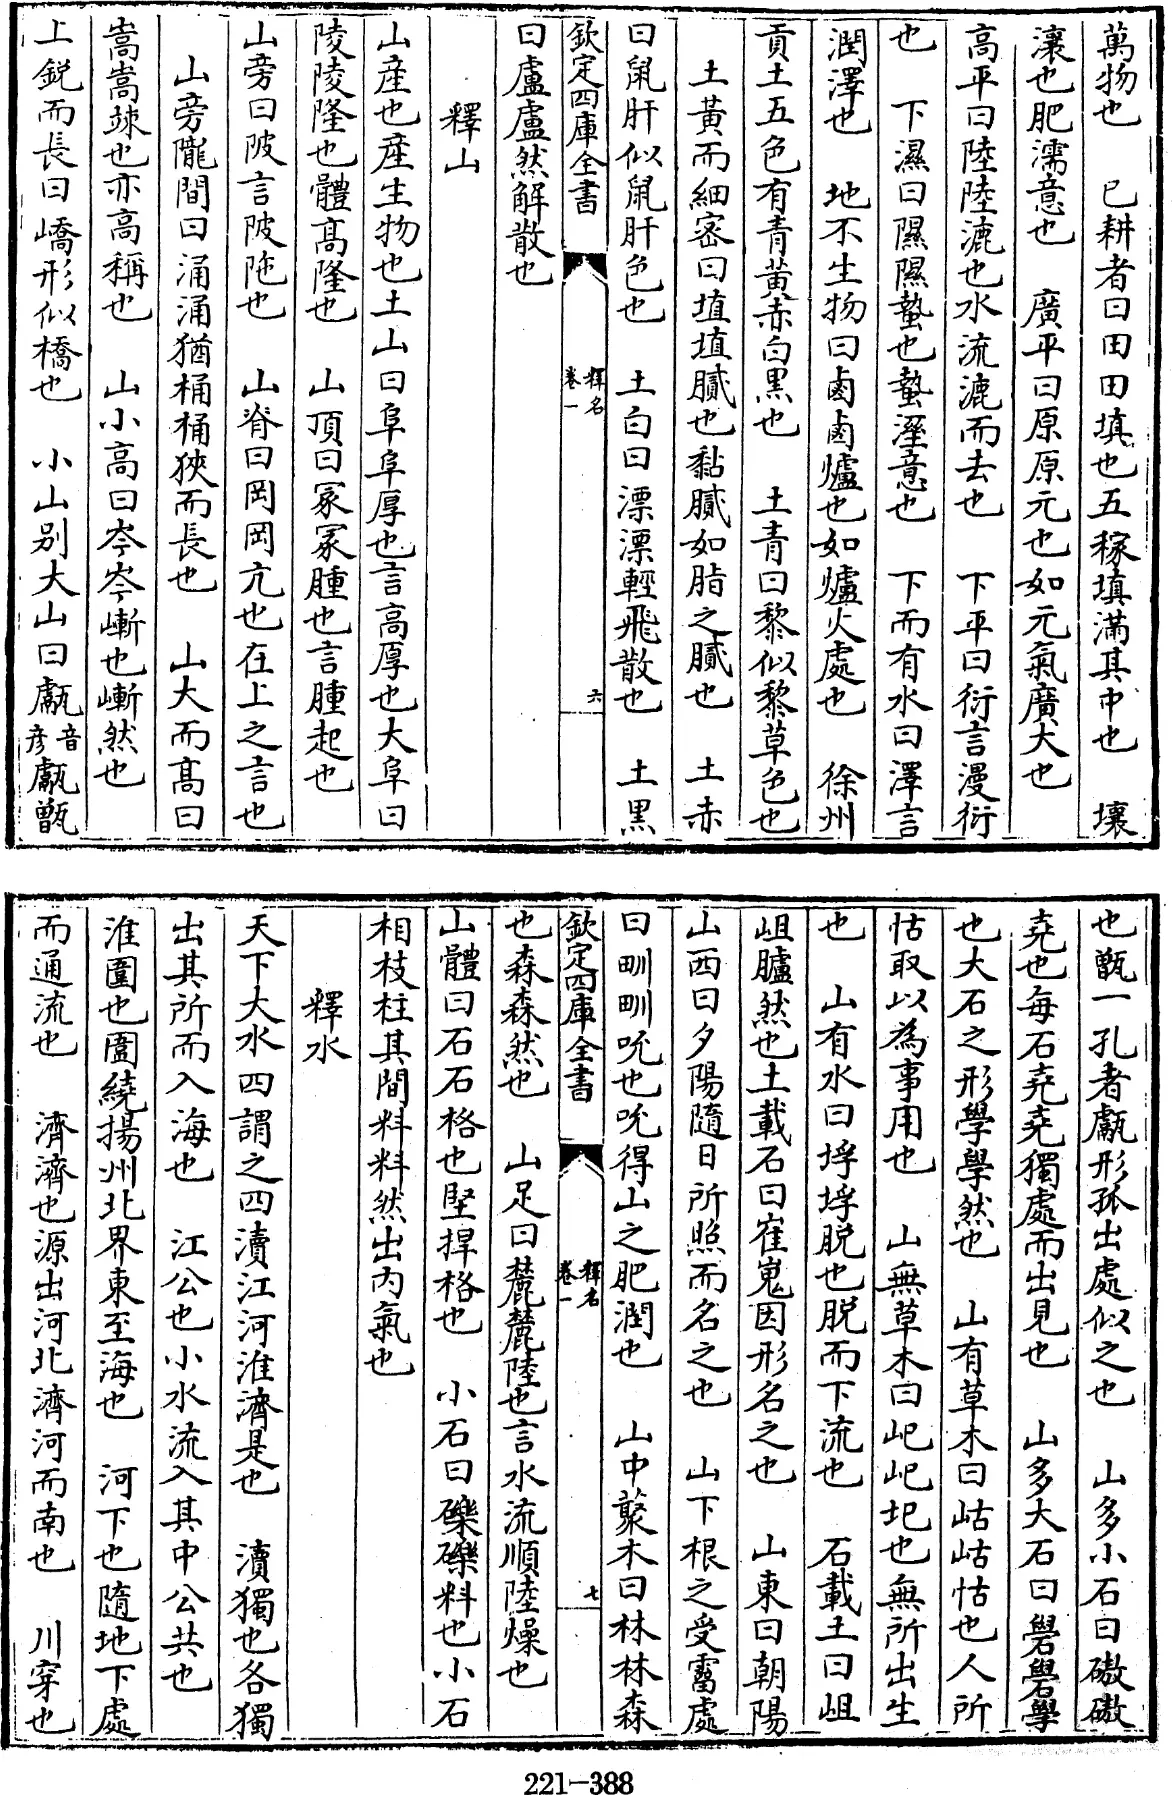 萬物也　已耕者曰田田填也五稼填滿其中也　壤
瀼也肥濡意也　廣平曰原原元也如元氣廣大也
高平曰陸陸漉也水流漉而去也　下平曰衍言漫衍
也　下濕曰隰隰蟄也蟄溼意也　下而有水曰澤言
潤澤也　地不生物曰鹵鹵爐也如爐火處也　徐州
貢土五色有青黃赤白黑也　土青曰黎似黎草色也
土黃而細密曰埴埴膩也黏膩如脂之膩也　土赤
曰鼠肝似鼠肝色也　土白曰漂漂輕飛散也　土黑
欽定四庫全書
釋名
卷一
六
曰盧盧然解散也
釋山
山產也產生物也土山曰阜阜厚也言高厚也大阜曰
陵陵隆也體高隆也　山頂曰冢冢腫也言腫起也
山旁曰陂言陂陁也　山脊曰岡岡亢也在上之言也
山旁隴間曰涌涌猶桶桶狹而長也　山大而高曰
嵩嵩竦也亦高稱也　山小高曰岑岑嶃也嶃然也
上銳而長曰嶠形似橋也　小山别大山曰甗音彥甗甑
也甑一孔者甗形孤出處似之也　山多小石曰磝磝
堯也每石堯堯獨處而出見也　山多大石曰礐礐學
也大石之形學學然也　山有草木曰岵岵怙也人所
怙取以為事用也　山無草木曰屺屺圮也無所出生
也　山有水曰垺垺脱也脱而下流也　石載土曰岨
岨臚然也土載石曰崔嵬因形名之也　山東曰朝陽
山西曰夕陽隨日所照而名之也　山下根之受霤處
曰甽甽吮也吮得山之肥潤也　山中藂木曰林林森
欽定四庫全書
釋名
卷一
七
也森森然也　山足曰麓麓陸也言水流順陸燥也
山體曰石石格也堅捍格也　小石曰礫礫料也小石
相枝柱其間料料然出内氣也
釋水
天下大水四謂之四瀆江河淮濟是也　瀆獨也各獨
出其所而入海也　江公也小水流入其中公共也
淮圍也圍繞揚州北界東至海也　河下也隨地下處
而通流也　濟濟也源出河北濟河而南也　川穿也
221-388